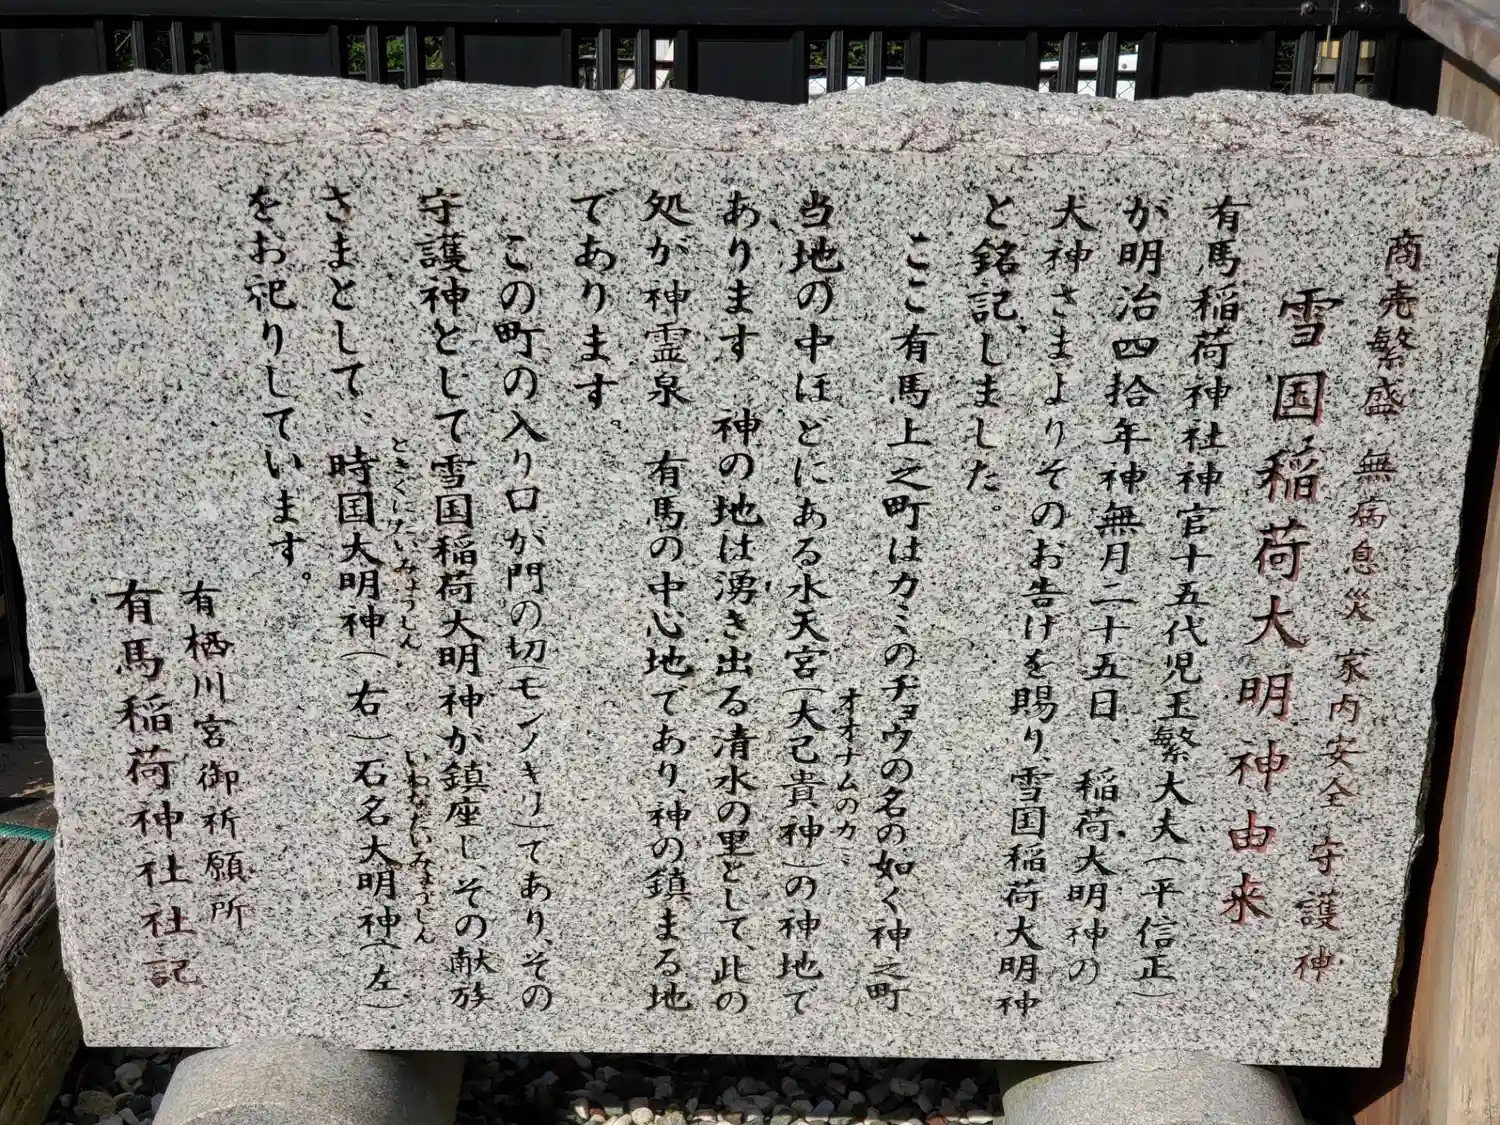 商売繁盛 無病息災 家内安全 守護神
雪国稲荷大明神由来
有馬稲荷神社神官十五代児玉繁大夫(平信正)
が明治四拾年神無月二十五日、稲荷大明神の
大神さまよりそのお告けを賜り、雪国稲荷大明神
と銘記しました。
ここ有馬上之町はカミのチョウの名の如く神之町
当地の中ほどにある水天宮(大己貴神)の神地で
オオナムのカミ
あります。神の地は湧き出る清水の里として、此の
処が神霊泉 有馬の中心地であり、神の鎮まる地
であります。
この町の入り口が門の切(モンノキリ)てあり、その
守護神として雪国稲荷大明神が鎮座し、その献族
さまとして、時国大明神(右)石名大明神(左)
ときくにだいみょうじん いわなだいみょうじん
をお祀りしています。
有栖川宮御祈願所
有馬稲荷神社社記